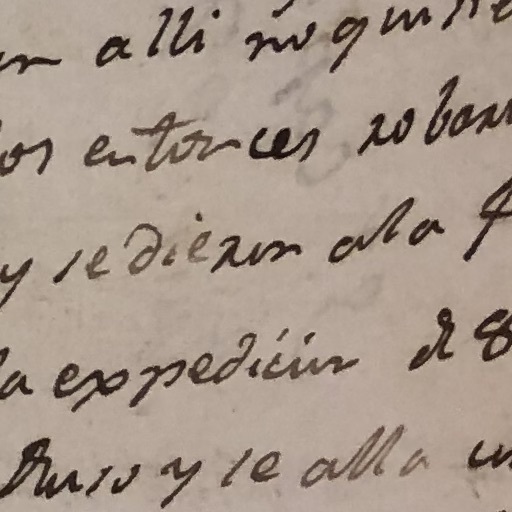 alli no quisie
los entonces robaro
y se dieron a la f
la expedición de 8
Ruso y se alla un